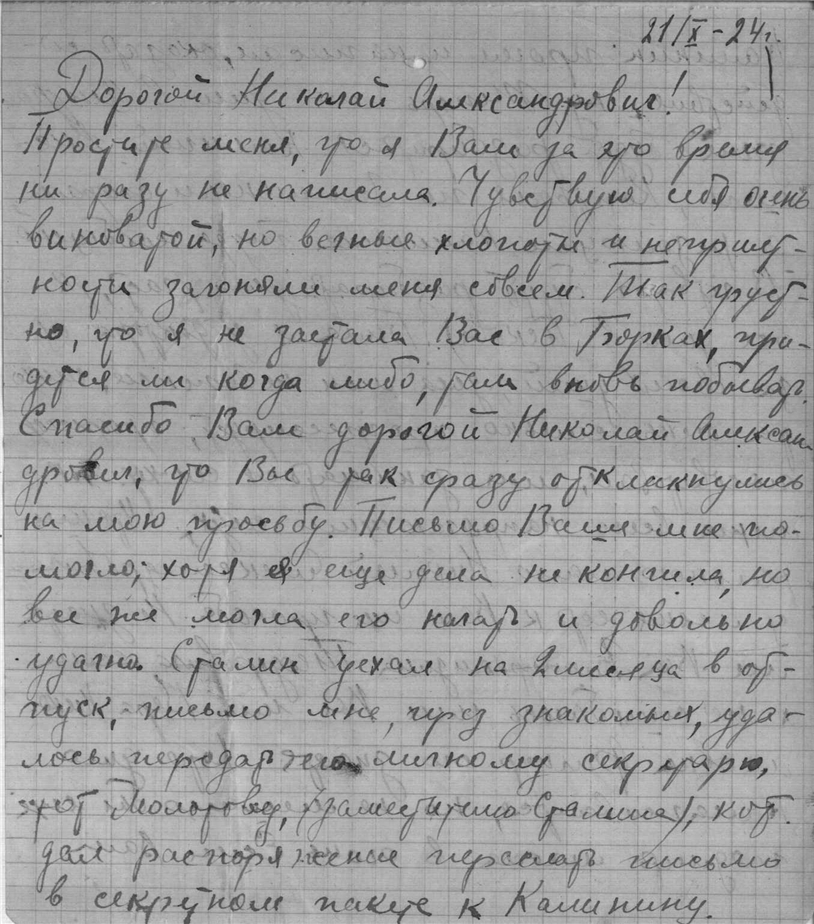 21/X-24г.
Дорогой Николай Александрович!
Простите меня, что я Вам за это время
ни разу не написала. Чувствую себя очень
виноватой, но вечные хлопоты и неприят-
ности загоняли меня совсем. Так груст-
но, что я не застала Вас в Борках, при-
дется ли когда либо, там вновь побывать.
Спасибо Вам дорогой Николай Алексан-
дрович, что Вы так сразу откликнулись
на мою просьбу. Письмо Ваше мне по-
могло, хотя я еще дела не кончила, но
все же могла его начать и довольно
удачно. Сталин уехал на 2 месяца в от-
пуск, письмо мне, через знакомых, уда-
лось передать его личному секретарю,
этот Молотову, (заместителю Сталина), кот.
дал распоряжение переслать письмо
в секретном пакете к Калинину